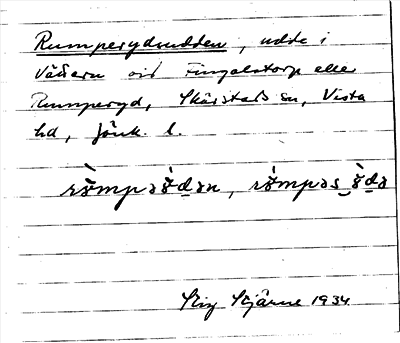 Rumperydsudden, udde i
Vättern vid Fingalstorp eller
Rumperyd, Skärstads sn, Vista
hd, Jönk. l.
Stig Stjärne 1934